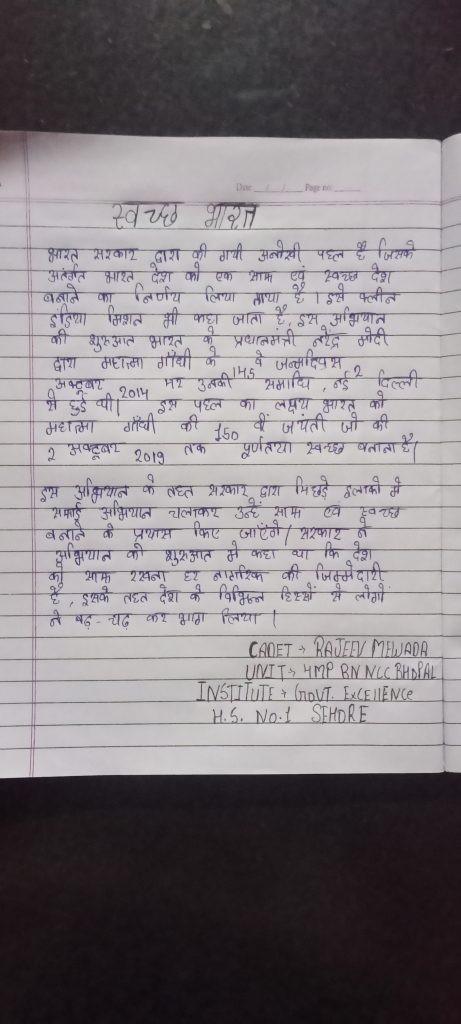 Date __/__/__ Page no: ____
स्वच्छ भारत
भारत सरकार द्वारा की गयी अनोखी पहल है जिसके
अतंर्गत भारत देश को एक साफ एवं स्वच्छ देश
बनाने का निर्णय लिया गया है। इसे क्लीन
इंडिया मिशन भी कहा जाता है, इस अभियान
की शुरुआत भारत के प्रधानमंत्री नरेंद्र मोदी
द्वारा महात्मा गाँधी के 145 वे जन्मदिवस 2
अक्टूबर 2014 पर उनकी समाधि, नई दिल्ली
से हुई थी। इस पहल का लक्ष्य भारत को
महात्मा गाँधी की 150 वीं जयंती जो की
2 अक्टूबर 2019 तक पूर्णतया स्वच्छ बनाना है।
इस अभियान के तहत सरकार द्वारा पिछड़े इलाको मे
सफाई अभियान चलाकर उन्हे साफ एवं स्वच्छ
बनाने के प्रयास किए जाएँगे। सरकार ने
अभियान की शुरुआत मे कहा था कि देश
को साफ रखना हर नागरिक की जिम्मेदारी
है, इसके तहत देश के विभिन्न हिस्सों से लोगो
ने बढ़-चढ़ कर भाग लिया।
CADET → RAJEEV MEWADA
UNIT → 4MP BN NCC BHOPAL
INSTITUTE → GOVT. EXCELLENCE
H.S. NO.1 SEHORE